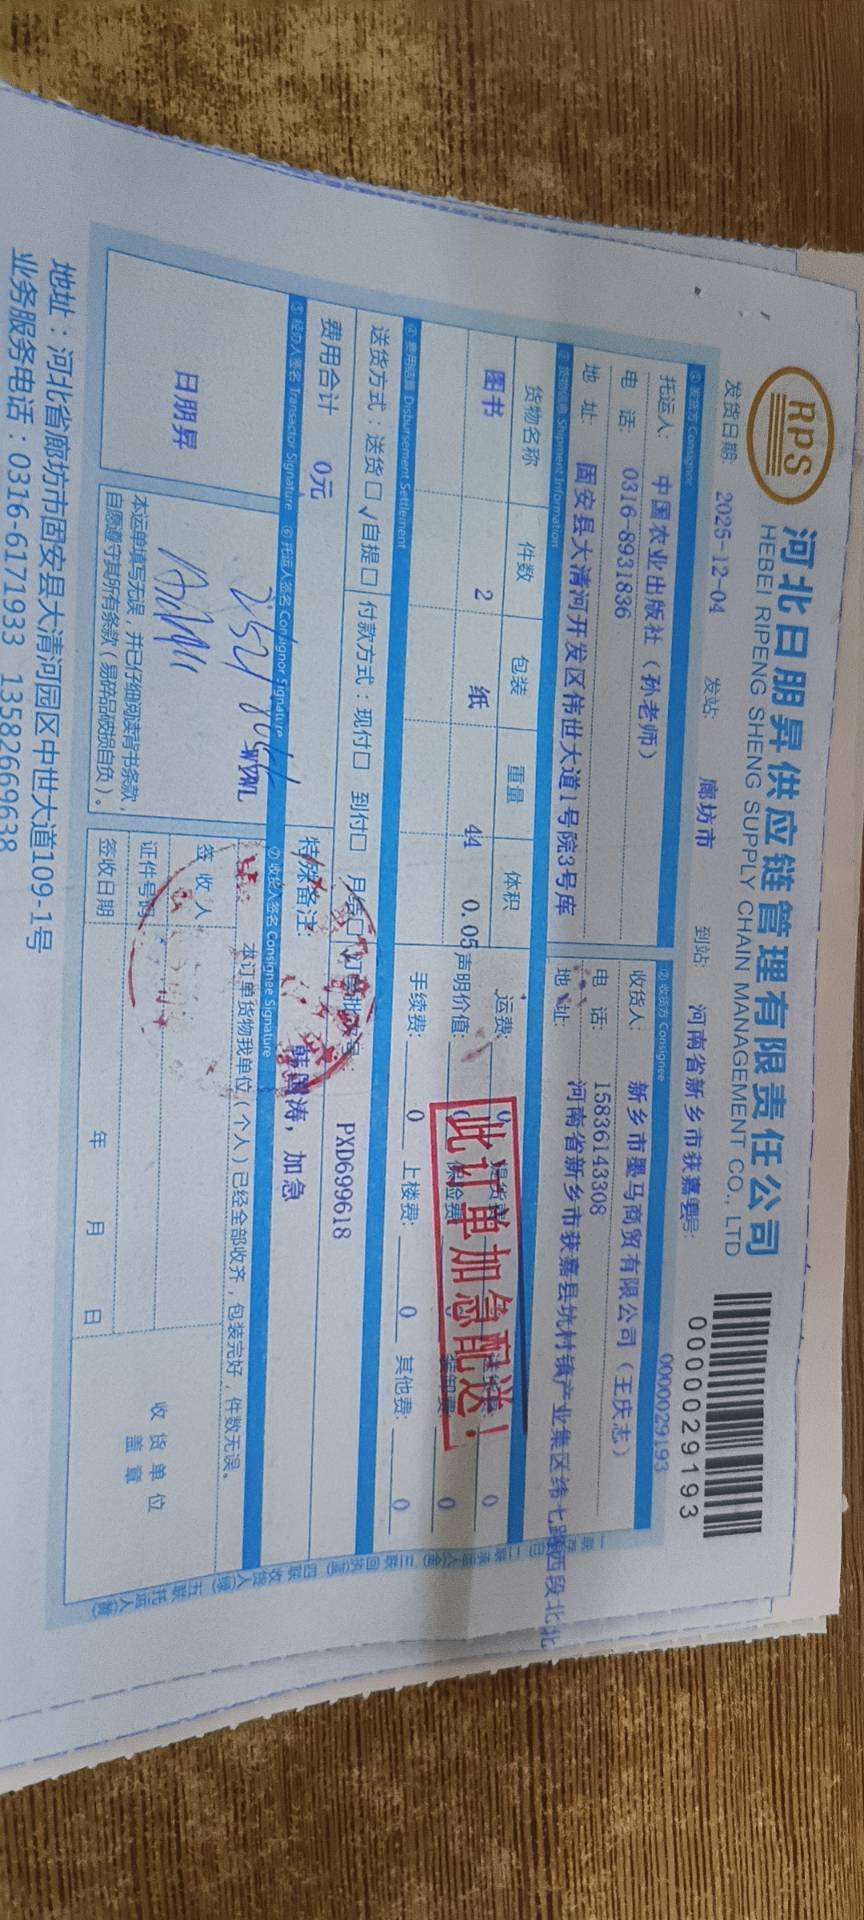 RPS
河北日朋昇供应链管理有限责任公司
HEBEI RIPENG SHENG SUPPLY CHAIN MANAGEMENT CO., LTD
0000029193
发货日期: 2025-12-04 发站: 廊坊市 到站: 河南省新乡市获嘉县 号: 0000029193
①发货方 Consignor ②收货方 Consignee
托运人: 中国农业出版社（孙老师） 收货人: 新乡市墨马商贸有限公司（王庆志）
电 话: 0316-8931836 电 话: 15836143308
地 址: 固安县大清河开发区伟世大道1号院3号库 地 址: 河南省新乡市获嘉县坑村镇产业集区纬七路西段北北
③货物信息 Shipment Information
货物名称 件数 包装 重量 体积 运费: 0
图书 2 纸 44 0.05 声明价值: 保险费 装卸费 0
此订单加急配送！
手续费: 0 上楼费: 0 其他费: 0
④费用结算 Disbursement Settlement
送货方式：送货□ √自提□ 付款方式：现付□ 到付□ 月结□ PXD699618
费用合计 0元 特殊备注: 韩国涛，加急
⑤经办人签名 Transactor Signature ⑥托运人签名 Consignor Signature ⑦收货人签名 Consignee Signature
日朋昇
本订单货物我单位（个人）已经全部收齐，包装完好，件数无误。
签 收 人
证件号码
签收日期 年 月 日
收货单位
盖 章
本运单填写无误，并已仔细阅读背书条款
自愿遵守其所有条款（易碎品破损自负）。
一联存(白) 二联承运人(金) 三联回执(蓝) 四联收货人(绿) 五联托运人(黄)
地址：河北省廊坊市固安县大清河园区中世大道109-1号
业务服务电话：0316-6171933 13582669638